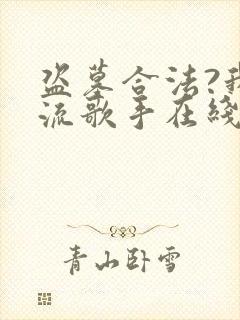 盗墓合法?我
流歌手在线
青山卧雪